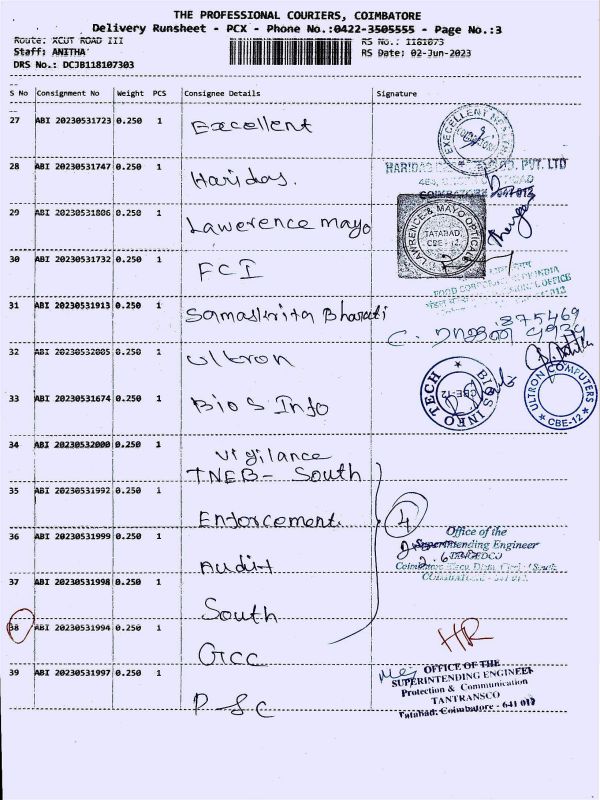 THE PROFESSIONAL COURIERS, COIMBATORE
Delivery Runsheet - PCX - Phone No.:0422-3505555 - Page No.:3
Route: XCUT ROAD III
RS No.: 1181073
Staff: ANITHA
RS Date: 02-Jun-2023
DRS No.: DCJB118107303
S No Consignment No Weight PCS Consignee Details Signature
27 ABI 20230531723 0.250 1 Excellent
28 ABI 20230531747 0.250 1 Haridas.
HARIDAS PVT. LTD
COIMBATORE
29 ABI 20230531806 0.250 1 Lawerence mayo
LAWRENCE & MAYO OPTICAL
TATABAD,
CBE - 12.
30 ABI 20230531732 0.250 1 FCI
FOOD CORPORATION OF INDIA
OFFICE
31 ABI 20230531913 0.250 1 Samaskrita Bharati
875469
4934
32 ABI 20230532005 0.250 1 Ultron
ULTRON COMPUTERS
* CBE-12 *
33 ABI 20230531674 0.250 1 Bios Info
BIOS INFO TECH
CBE-12
34 ABI 20230532000 0.250 1 Vigilance
TNEB - South
35 ABI 20230531992 0.250 1 Enforcement.
4
36 ABI 20230531999 0.250 1 Audit
Office of the
Superintending Engineer
TANGEDCO
37 ABI 20230531998 0.250 1 South
38 ABI 20230531994 0.250 1 GCC
HR
39 ABI 20230531997 0.250 1 P&C
OFFICE OF THE
SUPERINTENDING ENGINEER
Protection & Communication
TANTRANSCO
Tatabad, Coimbatore - 641 012